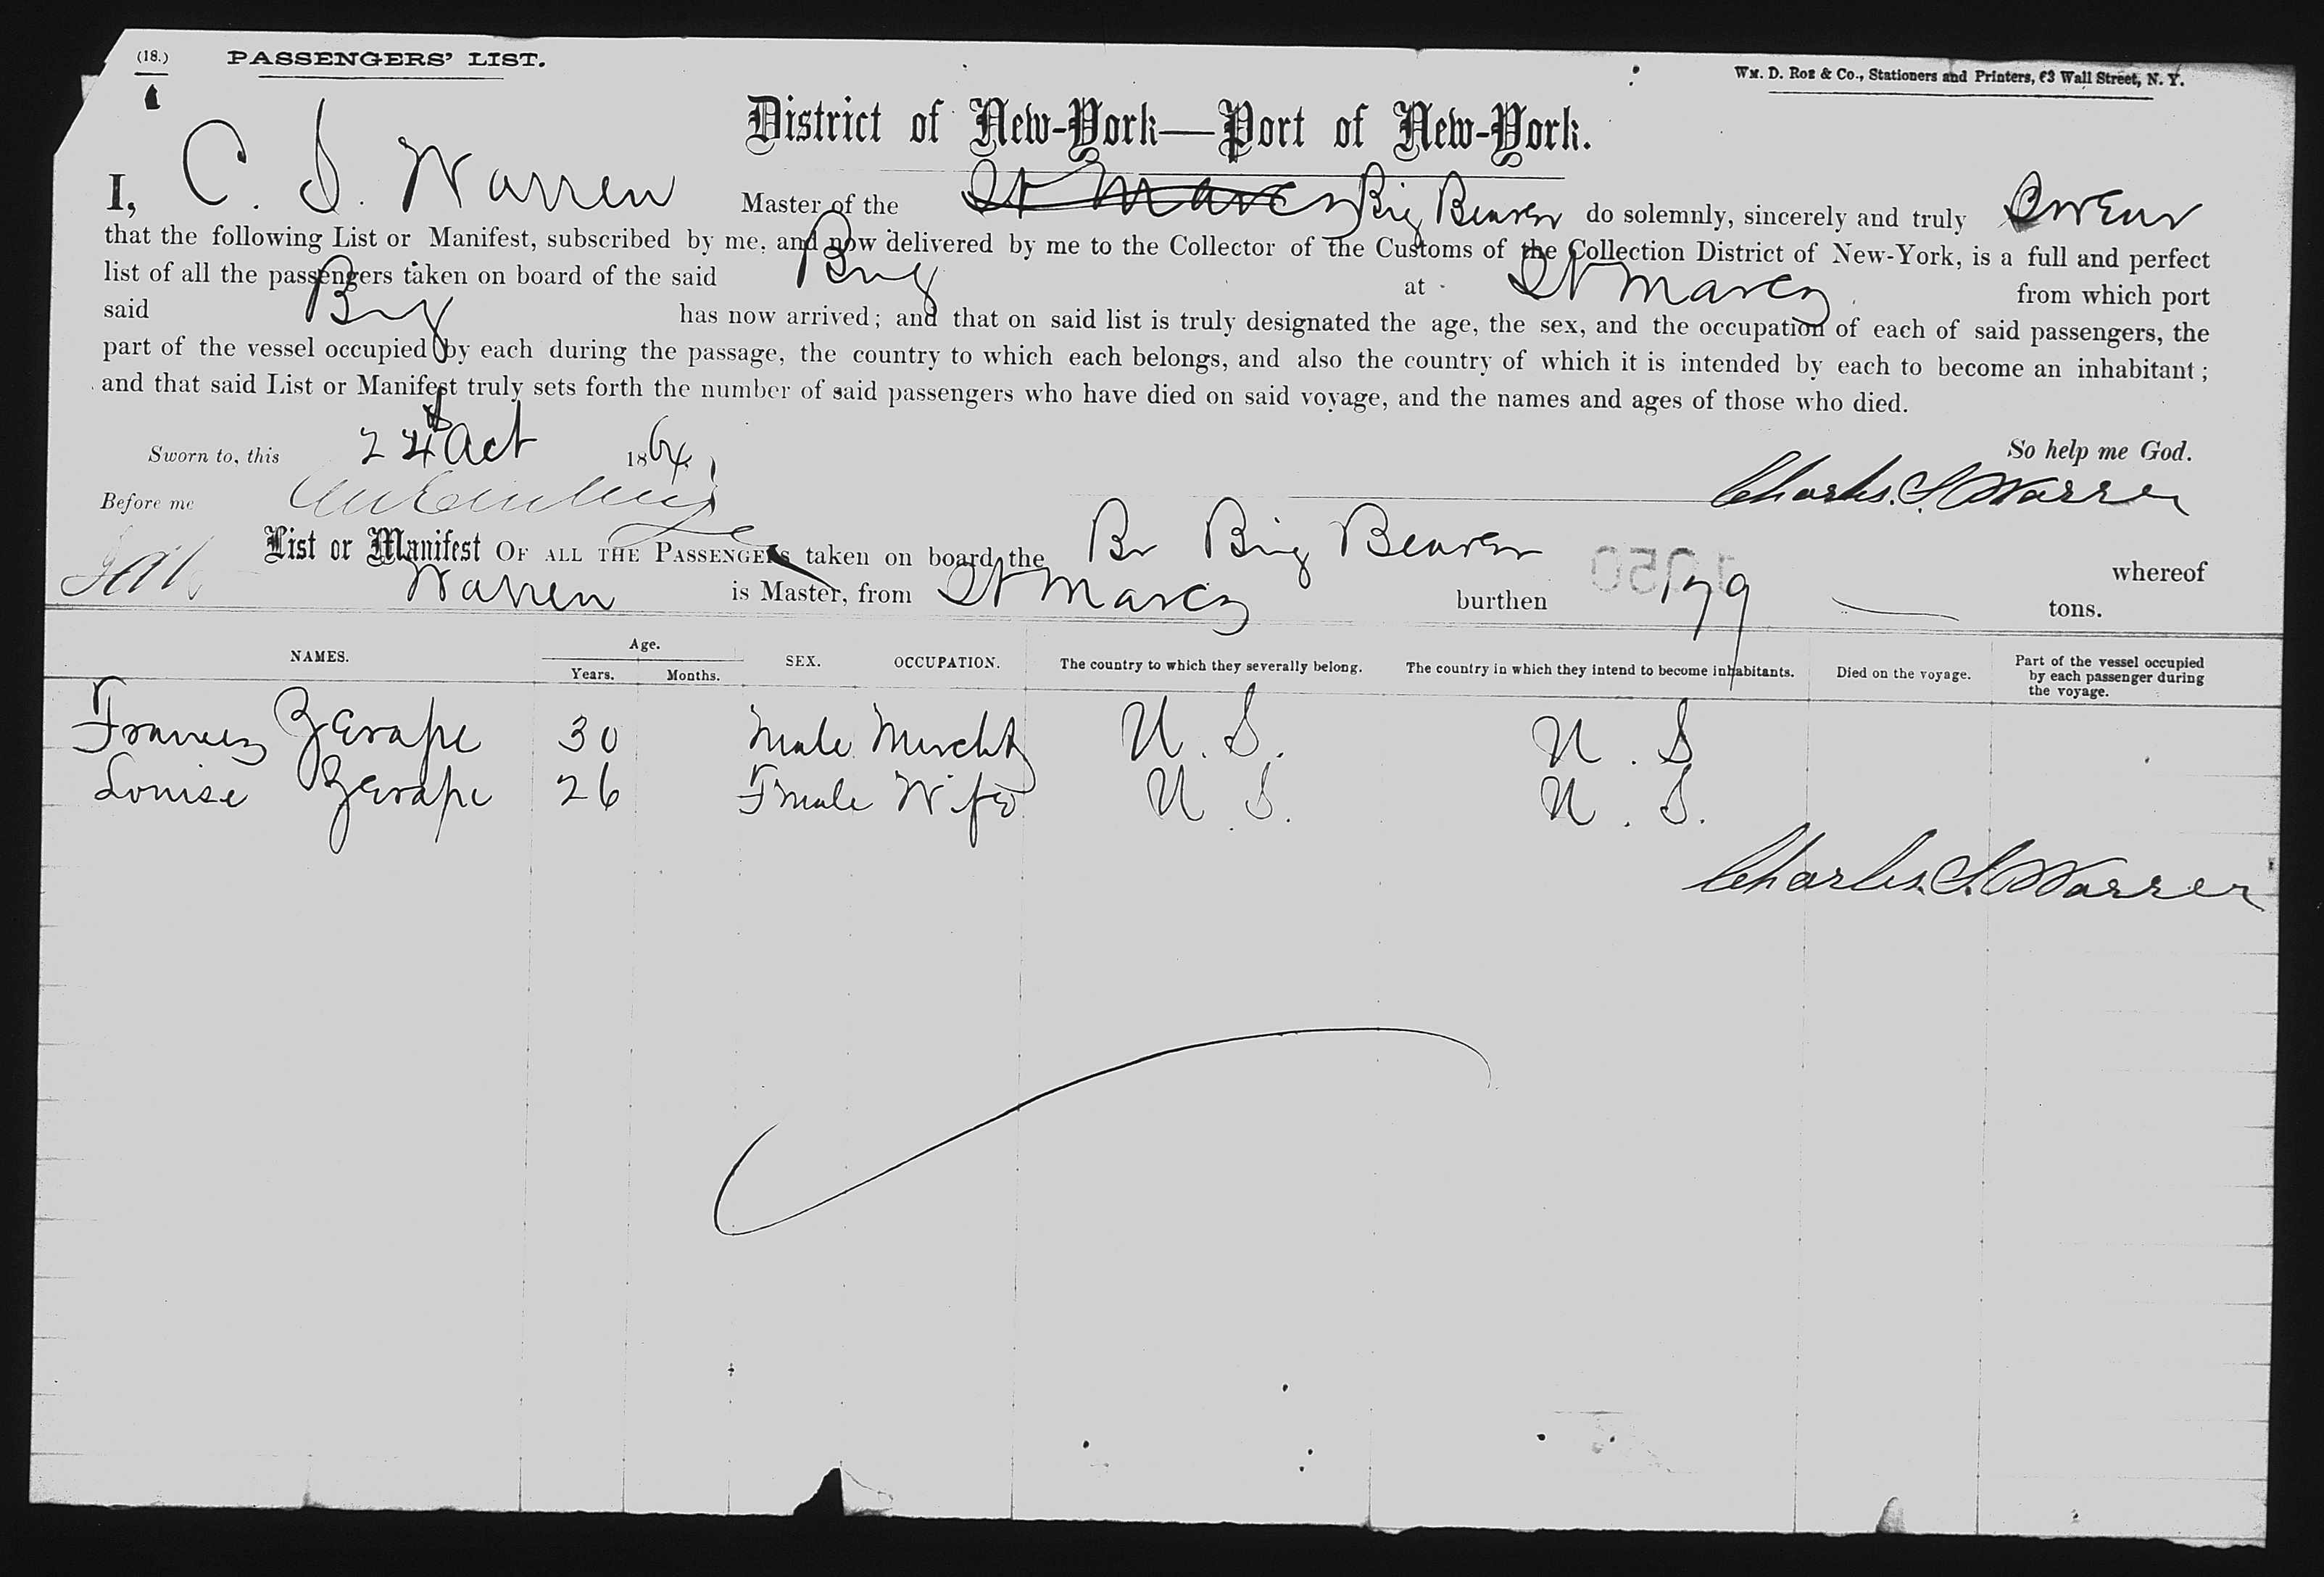 (18.) PASSENGERS' LIST.
Wm. D. Roe & Co., Stationers and Printers, 63 Wall Street, N. Y.
District of New-York—Port of New-York.
I, C. S. Warren Master of the St Marcs Brig Beaver do solemnly, sincerely and truly Swear
that the following List or Manifest, subscribed by me, and now delivered by me to the Collector of the Customs of the Collection District of New-York, is a full and perfect
list of all the passengers taken on board of the said Brig at St Marcs from which port
said Brig has now arrived; and that on said list is truly designated the age, the sex, and the occupation of each of said passengers, the
part of the vessel occupied by each during the passage, the country to which each belongs, and also the country of which it is intended by each to become an inhabitant;
and that said List or Manifest truly sets forth the number of said passengers who have died on said voyage, and the names and ages of those who died.
So help me God.
Sworn to, this 24th Oct 1864
Charles. S. Warren
Before me
List or Manifest OF ALL THE PASSENGERS taken on board the Br Brig Beaver whereof
Warren is Master, from St Marcs burthen 179 tons.
NAMES. Age. Years. Months. SEX. OCCUPATION. The country to which they severally belong. The country in which they intend to become inhabitants. Died on the voyage. Part of the vessel occupied by each passenger during the voyage.
Francis Zerape 30 Male Mercht U. S. U. S
Louise Zerape 26 Female Wife U. S. U. S.
Charles. S. Warren